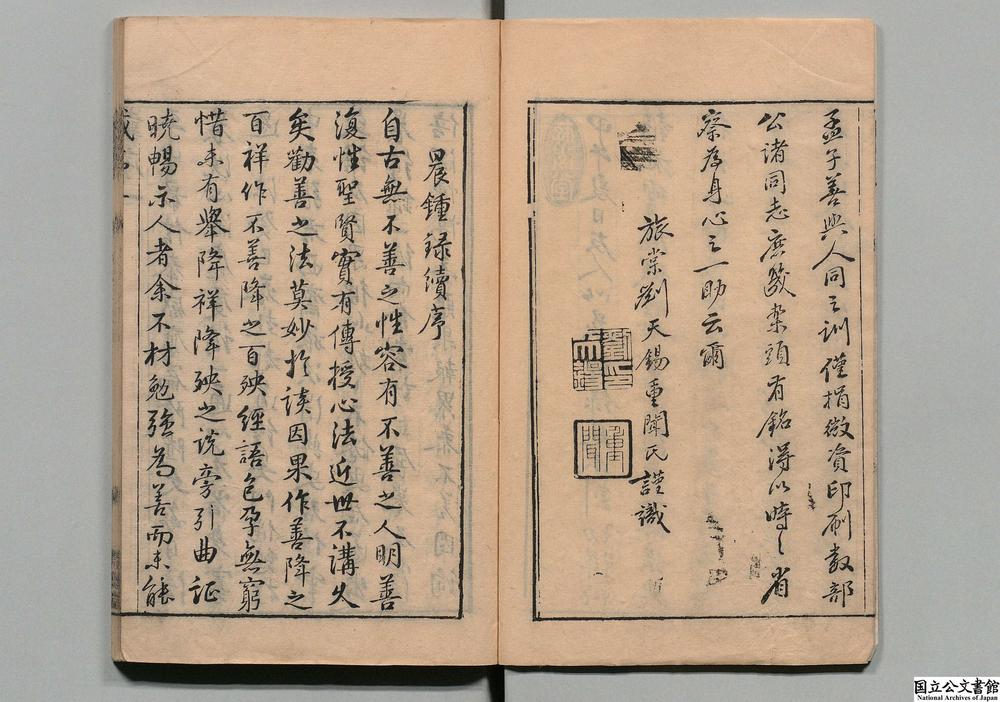 孟子善與人同之訓僅捐微資印刷數部
公諸同志庶幾案頭有銘得以時〻省
察為身心之一助云爾
旅棠劉天錫重聞氏謹識
重聞
晨鍾録續序
自古無不善之性容有不善之人明善
復性聖賢實有傳授心法近世不講久
矣勸善之法莫妙於談因果作善降之
百祥作不善降之百殃經語包孕無窮
惜未有舉降祥降殃之說旁引曲証
曉暢示人者余不材勉強為善而未能
国立公文書館
National Archives of Japan